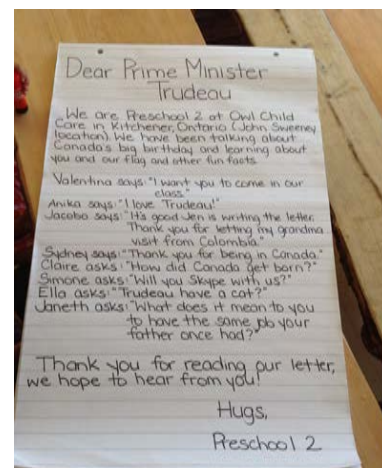 Dear Prime Minister
Trudeau
We are Preschool 2 at Owl Child
Care in Kitchener, Ontario (John Sweeney
location). We have been talking about
Canada's big birthday and learning about
you and our flag and other fun facts.
Valentina says: "I want you to come in our
class."
Anika says: "I love Trudeau!"
Jacobo says: "It's good Jen is writing the letter.
Thank you for letting my grandma
visit from Colombia."
Sydney says: "Thank you for being in Canada."
Claire asks: "How did Canada get born?"
Simone asks: "Will you Skype with us?"
Ella asks: "Trudeau have a cat?"
Janeth asks: "What does it mean to you
to have the same job your
father once had?"
Thank you for reading our letter,
we hope to hear from you!
Hugs,
Preschool 2